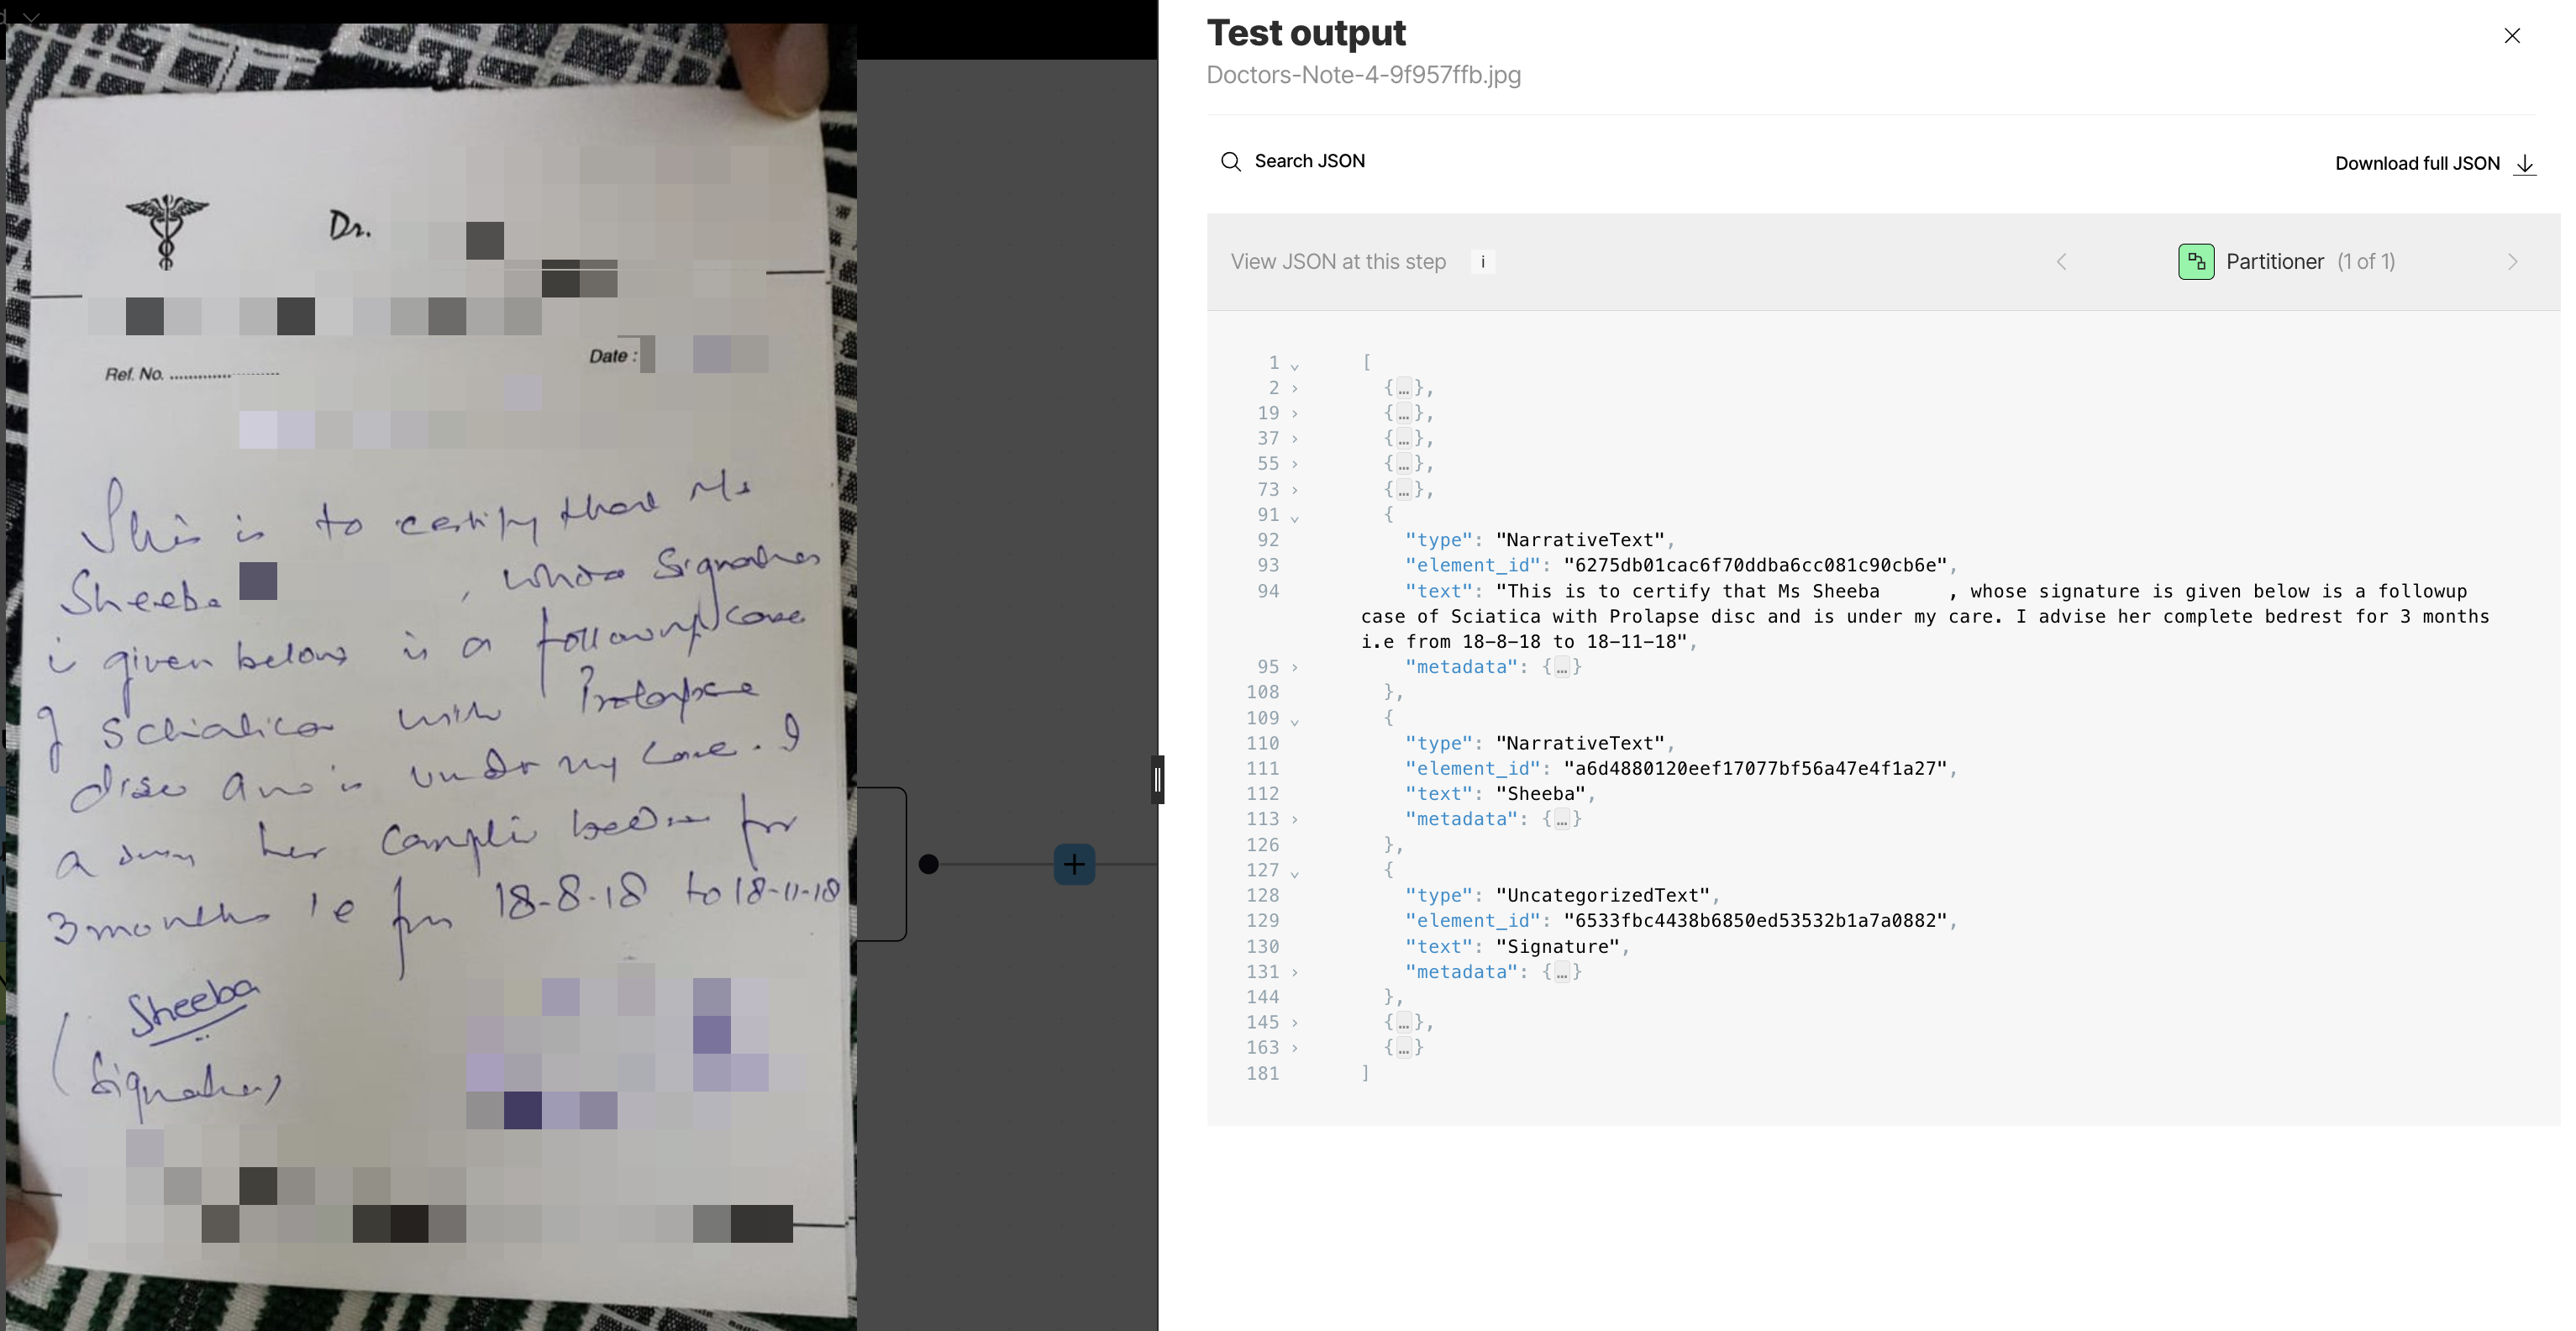 Dr.
Date :
Ref. No. ....................
This is to certify that Ms
Sheeba , whose Signature
is given below is a followup case
of Schiatica with Prolapse
disc and is under my care. I
advise her complete bedrest for
3 months ie from 18-8-18 to 18-11-18
Sheeba
(Signature)
Test output
Doctors-Note-4-9f957ffb.jpg
Search JSON
Download full JSON
View JSON at this step i
Partitioner (1 of 1)
1 [
2 {…},
19 {…},
37 {…},
55 {…},
73 {…},
91 {
92 "type": "NarrativeText",
93 "element_id": "6275db01cac6f70ddba6cc081c90cb6e",
94 "text": "This is to certify that Ms Sheeba , whose signature is given below is a followup
case of Sciatica with Prolapse disc and is under my care. I advise her complete bedrest for 3 months
i.e from 18-8-18 to 18-11-18",
95 "metadata": {…}
108 },
109 {
110 "type": "NarrativeText",
111 "element_id": "a6d4880120eef17077bf56a47e4f1a27",
112 "text": "Sheeba",
113 "metadata": {…}
126 },
127 {
128 "type": "UncategorizedText",
129 "element_id": "6533fbc4438b6850ed53532b1a7a0882",
130 "text": "Signature",
131 "metadata": {…}
144 },
145 {…},
163 {…}
181 ]